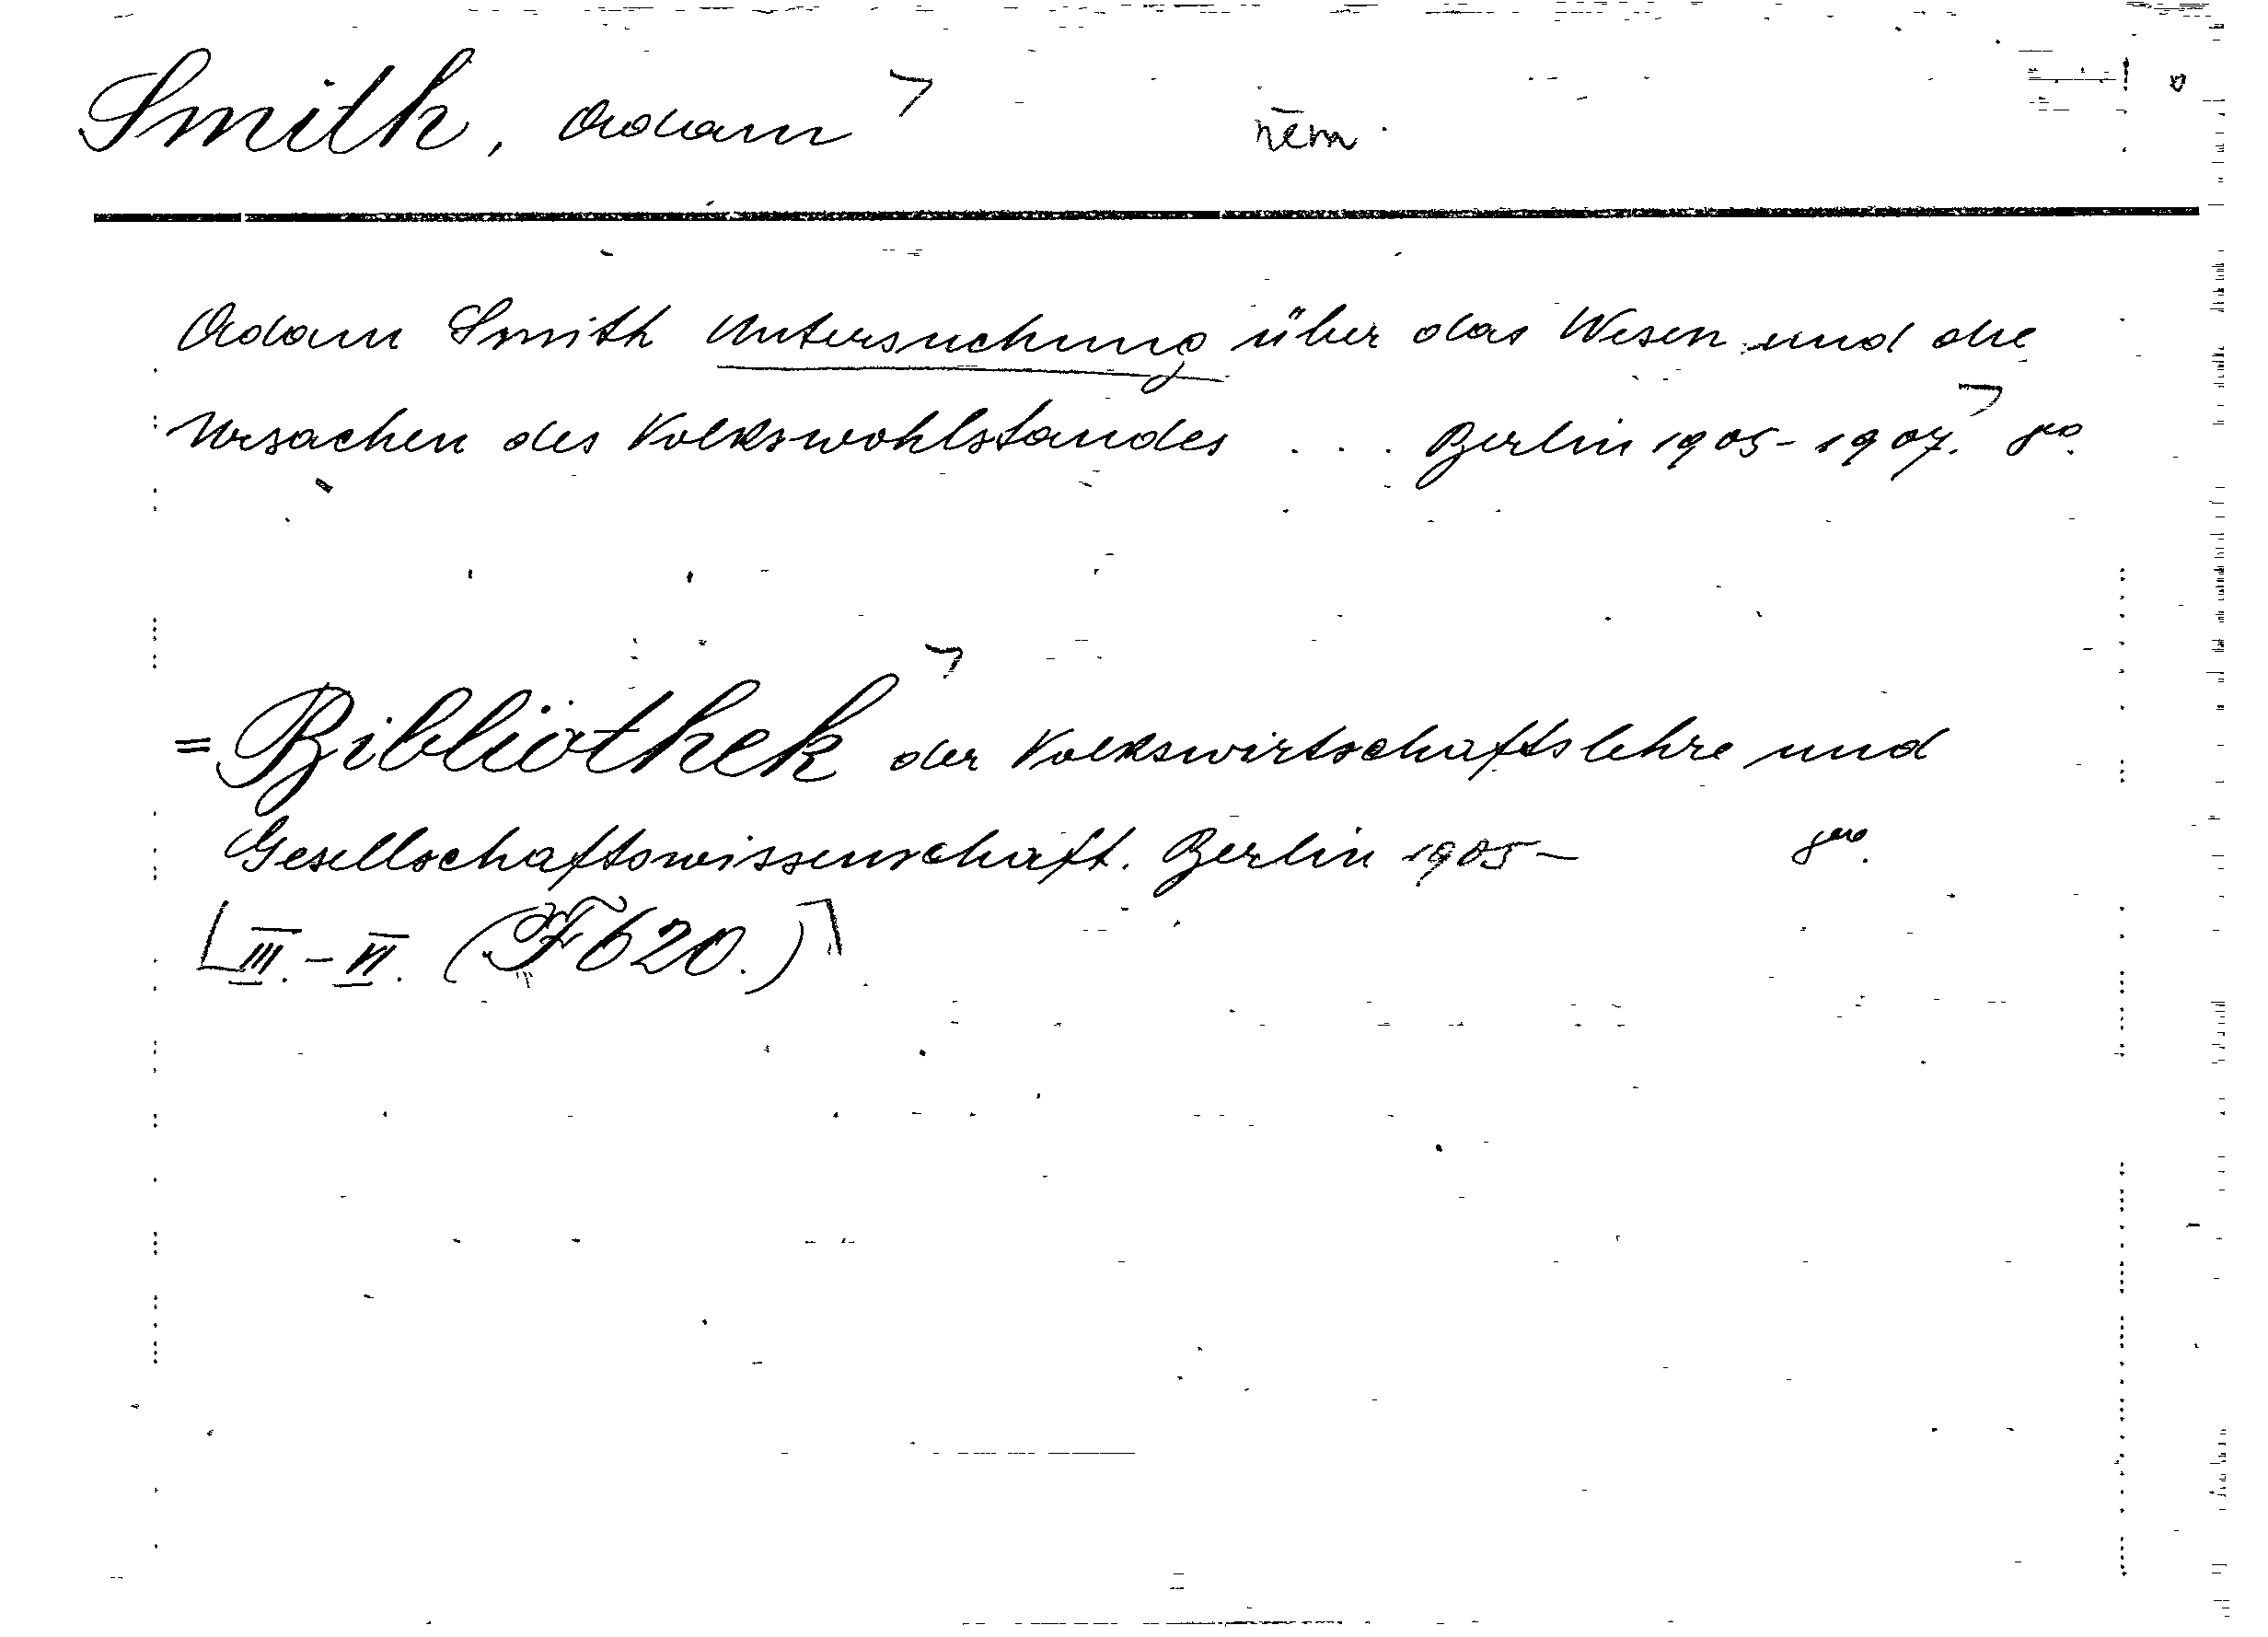 Smith, Adam ⌝ něm.
Adam Smith Untersuchung über das Wesen und die
Ursachen des Volkswohlstandes ... Berlin 1905-1907.⌝ 8º.
= Bibliothek ⌝ der Volkswirtschaftslehre und
Gesellschaftswissenschaft. Berlin 1905 — 8vo.
⌊III.-VI. (F 620.)⌉